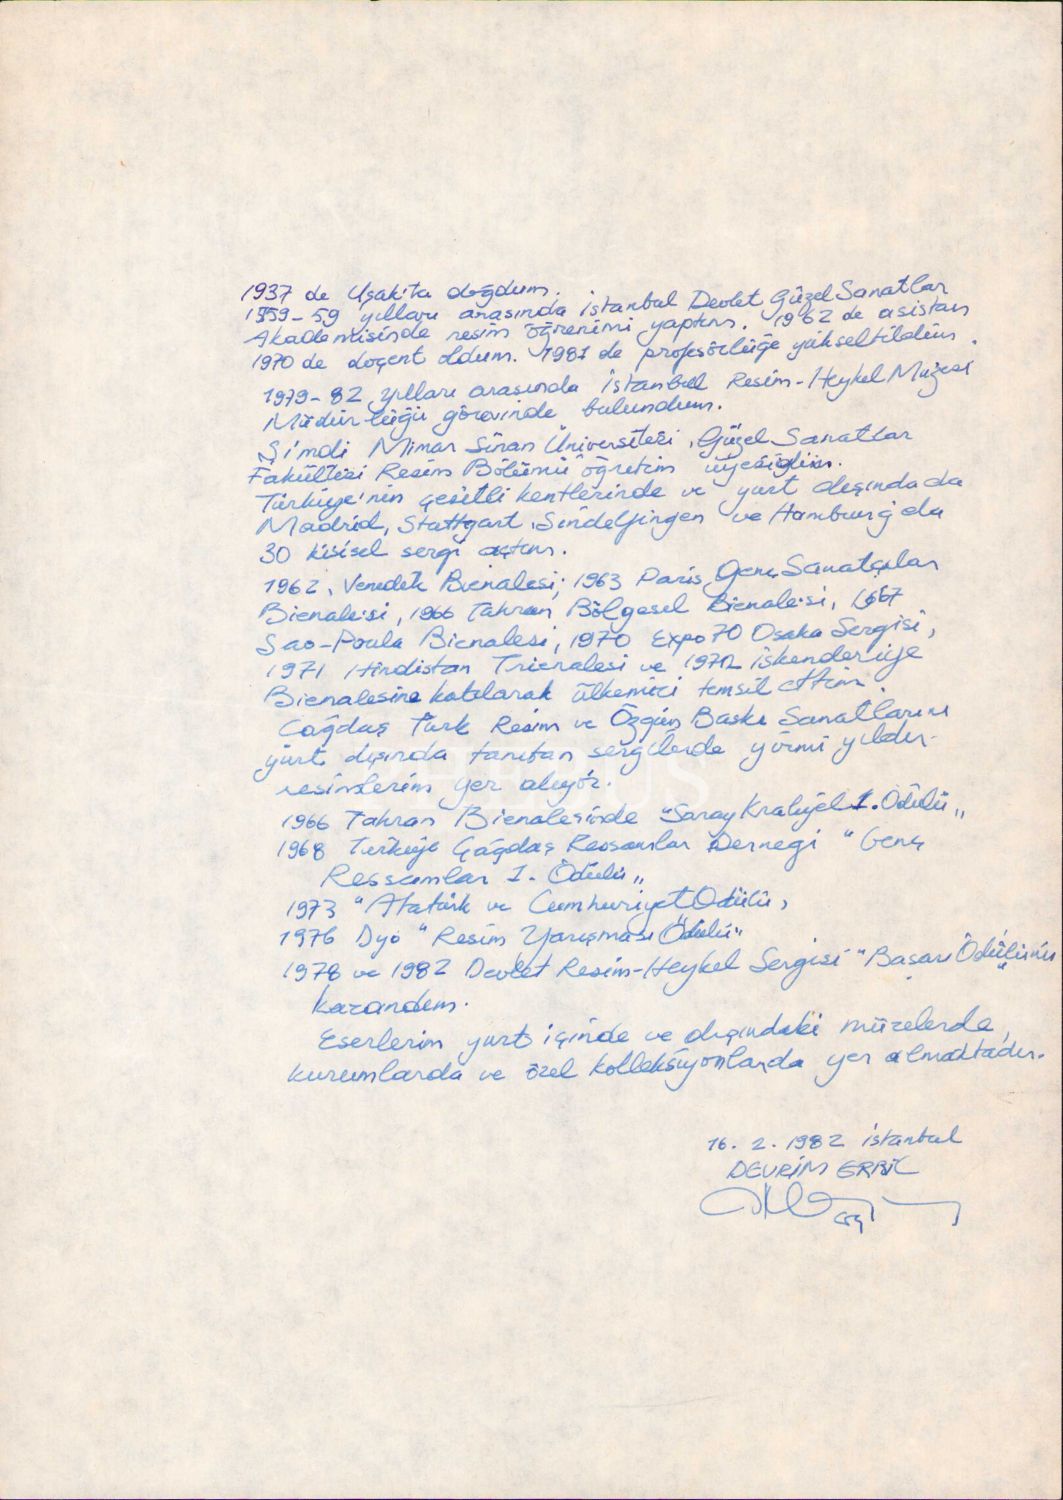 1937 de Uşak'ta doğdum.
1959-59 yılları arasında İstanbul Devlet Güzel Sanatlar
Akademisinde resim öğrenimi yaptım. 1962 de asistan
1970 de doçent oldum. 1981 de profesörlüğe yükseltildim.
1979-82 yılları arasında İstanbul Resim-Heykel Müzesi
Müdürlüğü görevinde bulundum.
Şimdi Mimar Sinan Üniversitesi, Güzel Sanatlar
Fakültesi Resim Bölümü öğretim üyesiyim.
Türkiye'nin çeşitli kentlerinde ve yurt dışında da
Madrid, Stuttgart, Sindelfingen ve Hamburg'da
30 kişisel sergi açtım.
1962, Venedik Bienalesi, 1963 Paris Genç Sanatçılar
Bienalesi, 1966 Tahran Bölgesel Bienalesi, 1967
Sao-Poula Bienalesi, 1970 Expo 70 Osaka Sergisi,
1971 Hindistan Trienalesi ve 1972 İskenderiye
Bienalesine katılarak ülkemizi temsil ettim.
Çağdaş Türk Resim ve Özgün Baskı Sanatlarını
yurt dışında tanıtan sergilerde yirmi yıldır
resimlerim yer alıyor.
1966 Tahran Bienalesinde "Saray Kraliyet 1. Ödülü"
1968 Türkiye Çağdaş Ressamlar Derneği "Genç
Ressamlar 1. Ödülü"
1973 "Atatürk ve Cumhuriyet Ödülü,
1976 Dyo "Resim Yarışması Ödülü"
1978 ve 1982 Devlet Resim-Heykel Sergisi "Başarı Ödülünü"
kazandım.
Eserlerim yurt içinde ve dışındaki müzelerde,
kurumlarda ve özel kolleksiyonlarda yer almaktadır.
16.2.1982 İstanbul
DEVRİM ERBİL